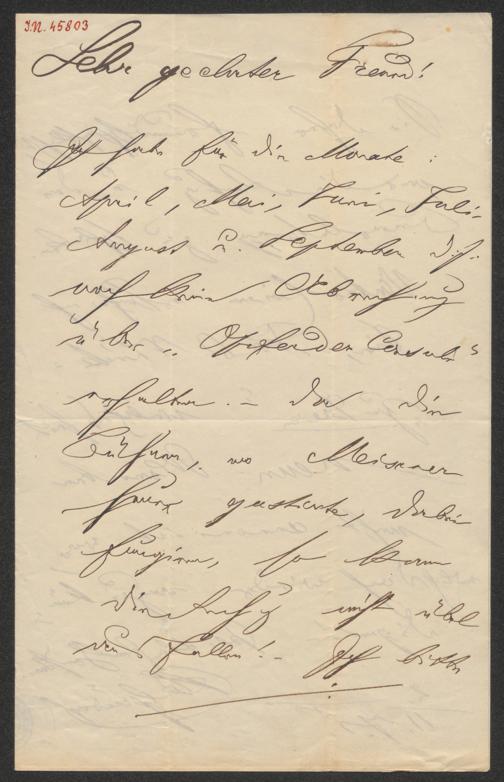 I.N. 45803
Sehr geehrter Freund!
Ich habe für die Monate:
April, Mai, Juni, Juli,
August u. September d. J.
noch keine Abrechnung
über „Opfer der Consuln"
erhalten. – Da die
Bühnen, wo Meixner
gastirte, dabei
so kann
die nicht übel
ausfallen! – Ich bitte